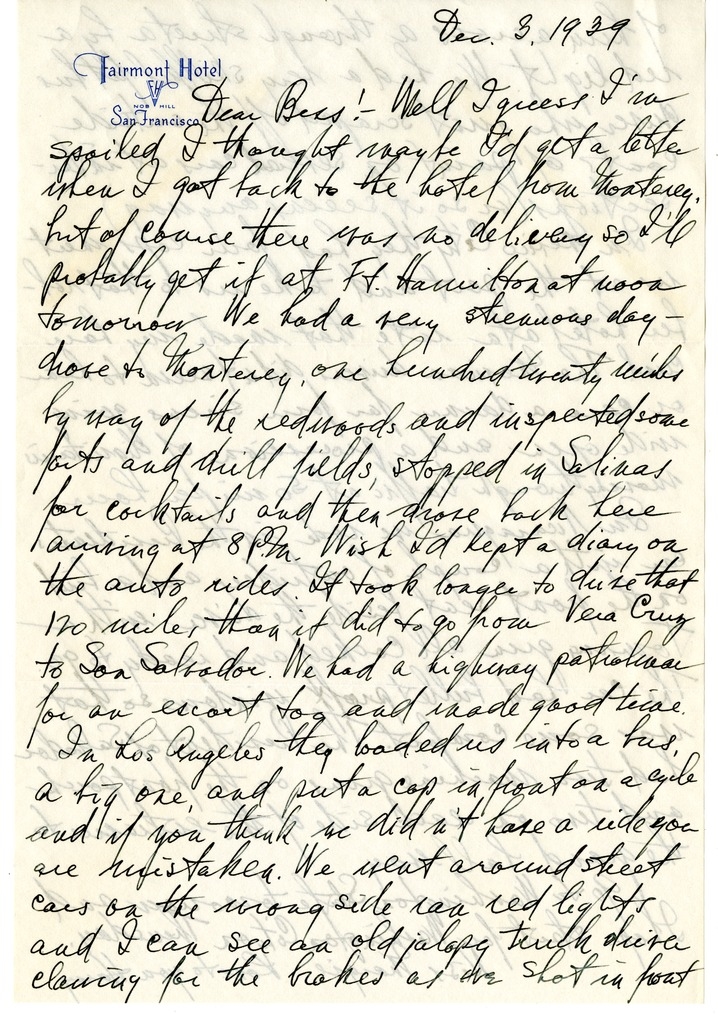 Dec. 3, 1939
Fairmont Hotel
NOB HILL
San Francisco
Dear Bess:- Well I guess I'm
spoiled I thought maybe I'd get a letter
when I got back to the hotel from Monterey,
but of course there was no delivery so I'll
probably get it at Ft. Hamilton at noon
tomorrow We had a very strenuous day-
drove to Monterey, one hundred twenty miles
by way of the redwoods and inspected some
forts and drill fields, stopped in Salinas
for cocktails and then drove back here
arriving at 8 P.M. Wish I'd kept a diary on
the auto rides. It took longer to drive that
120 miles than it did to go from Vera Cruz
to San Salvador. We had a highway patrolman
for an escort too and made good time.
In Los Angeles they loaded us into a bus,
a big one, and put a cop in front on a cycle
and if you think we didn't have a ride you
are mistaken. We went around street
cars on the wrong side ran red lights
and I can see an old jalopy truck driver
clawing for the brakes as we shot in front